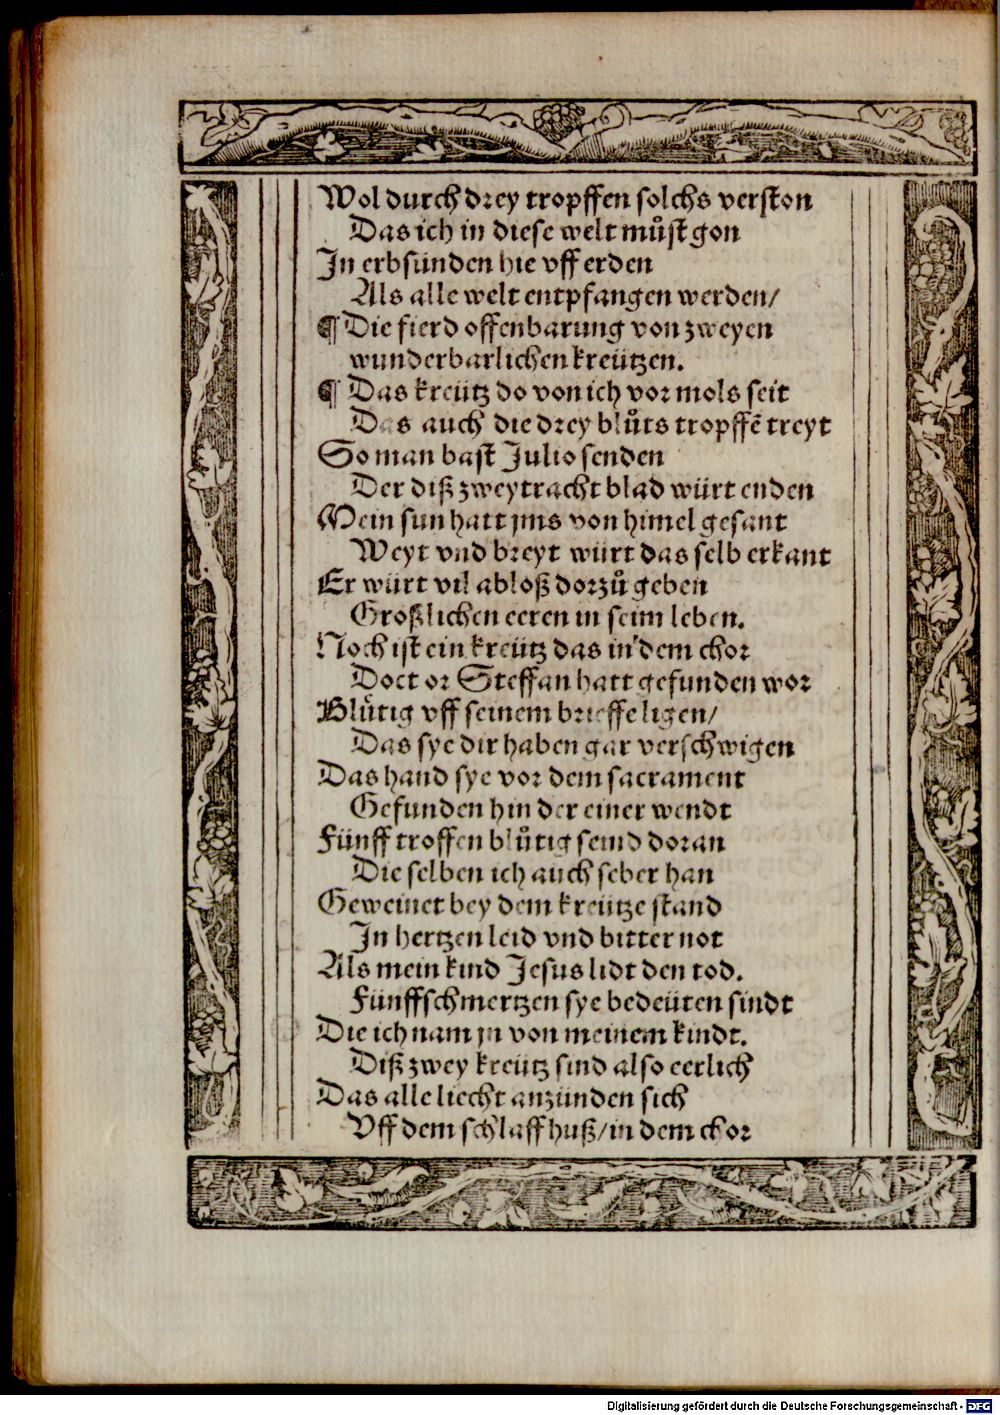 Wol durch drey tropffen solchs verston
Das ich in diese welt muͦst gon
In erbsünden hie vff erden
Als alle welt entpfangen werden/
¶ Die fierd offenbarung von zweyen
wunderbarlichen kreützen.
¶ Das kreütz do von ich vor mols seit
Das auch die drey bluͦts tropffẽ treyt
So man bast Julio senden
Der diß zweytracht blad würt enden
Mein sun hatt jms von himel gesant
Weyt vnd breyt würt das selb erkant
Er würt vil abloß dorzuͦ geben
Großlichen eeren in seim leben.
Noch ist ein kreütz das in dem chor
Doct or Steffan hatt gefunden wor
Bluͦtig vff seinem brieffe ligen/
Das sye dir haben gar verschwigen
Das hand sye vor dem sacrament
Gefunden hin der einer wendt
Fünff troffen bluͦtig seind doran
Die selben ich auch seber han
Geweinet bey dem kreütze stand
In hertzen leid vnd bitter not
Als mein kind Jesus lidt den tod.
Fünffschmertzen sye bedeüten sindt
Die ich nam jn von meinem kindt.
Diß zwey kreütz sind also eerlich
Das alle liecht anzünden sich
Vff dem schlaffhuß/in dem chor
Digitalisierung gefördert durch die Deutsche Forschungsgemeinschaft - DFG